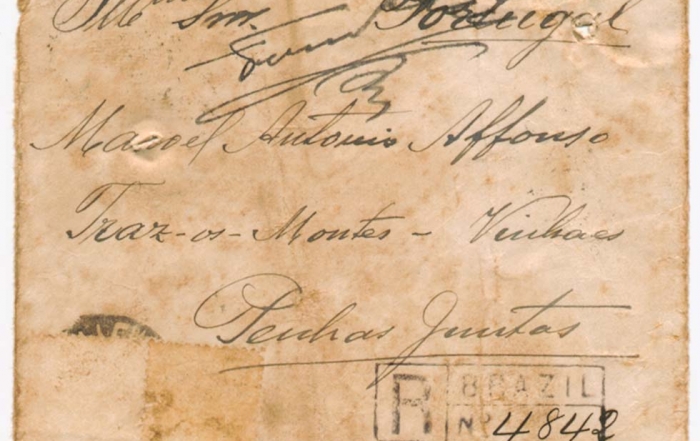 Illmo Snr. Portugal
Manoel Antonio Affonso
Traz-os-Montes - Vinhaes
Penhas Juntas
R BRAZIL
Nº 4842